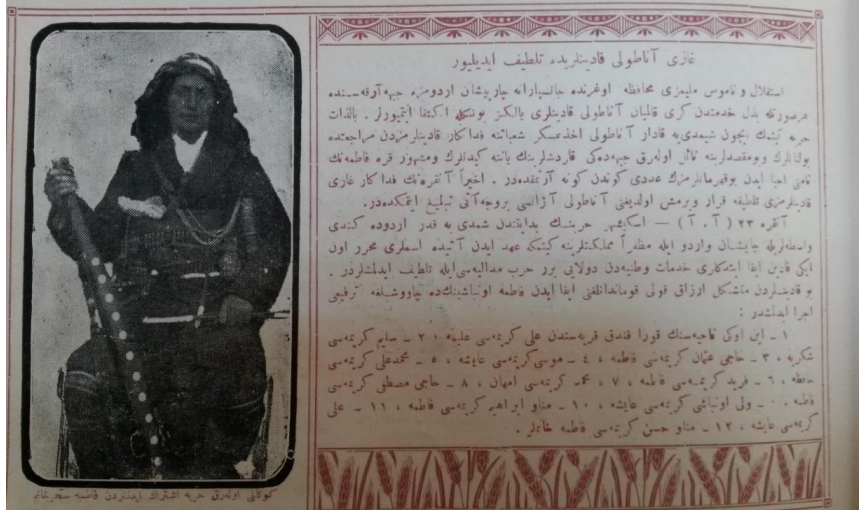 غازی آناطولی قادینلریده تلطیف ایدیلیور
استقلال و ناموس ملیمزی محافظه اوغرنده جانسپارانه چارپیشان اردومزه جبهه آرقه‌سنده
هرصورتله بذل خدمتدن گری قالمیان آناطولی قادینلری یالکز بونکله اکتفا ایتمیورلر . بالذات
حربه گیتمك ایچون شیمدی‌یه قادار آناطولی اخذعسکر شعباتنه فداکار قادینلرمزدن مراجعتده
بولنانلرك وبومقصدلرینه نائل اوله‌رق جبهه‌ده‌کی قارداشلرینك یاننه گیدنلرك ومشهور قره فاطمه‌نك
نامنی احیا ایدن بوقهرمانلرمزك عددی کوندن کونه آرتمقده‌در . اخیراً آنقره‌نك فداکار غازی
قادینلرمزی تلطیفه قرار ویرمش اولدیغنی آناطولی آژانسی بروجه‌آتی تبلیغ ایتمکده‌در.
آنقره ۲۳ ( آ . آ ) — اسکیشهر حربنك بدایتندن شمدی یه قدر اردوده کندی
واسطه‌لریله چالیشان واردو ایله مظفراً مملکتلرینه کیتمکه عهد ایدن آتیده اسملری محرر اون
ایکی قادین ایفا ایتدکلری خدمات وطنیه‌دن دولایی برر حرب مدالیه‌سی‌ایله تلطیف ایدلمشلردر .
بو قادینلردن متشکل ارزاق قولی قوماندانلغنی ایفا ایدن فاطمه اونباشینك‌ده چاووشلغه ترفیعی
اجرا ایدلمشدر :
۱ ـ این اوکی ناحیه‌سنك قورا فندق قریه‌سندن علی کریمه‌سی علیفه ، ۲ ـ سلیم کریمه‌سی
شکریه ، ۳ ـ حاجی عثمان کریمه‌سی فاطمه ، ٤ ـ موسی کریمه‌سی عایشه ، ٥ ـ محمدعلی کریمه‌سی
حافظه ، ٦ ـ فرید کریمه‌سی فاطمه ، ۷ ، محمد کریمه‌سی امهان ، ۸ ـ حاجی مصطفی کریمه‌سی
فاطمه . ـ ولی اونباشی کریمه‌سی عایشه ، ۱۰ ـ مناو ابراهیم کریمه‌سی فاطمه ، ۱۱ ـ علی
کریمه‌سی عایشه ، ۱۲ ـ مناو حسن کریمه‌سی فاطمه خانملر .
کوکللی اوله‌رق حربه اشتراك ایدنلردن فاطمه سحرخانم